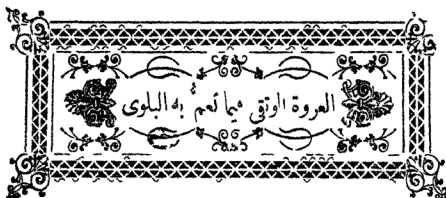 العروة الوثقى فيما تعم به البلوى